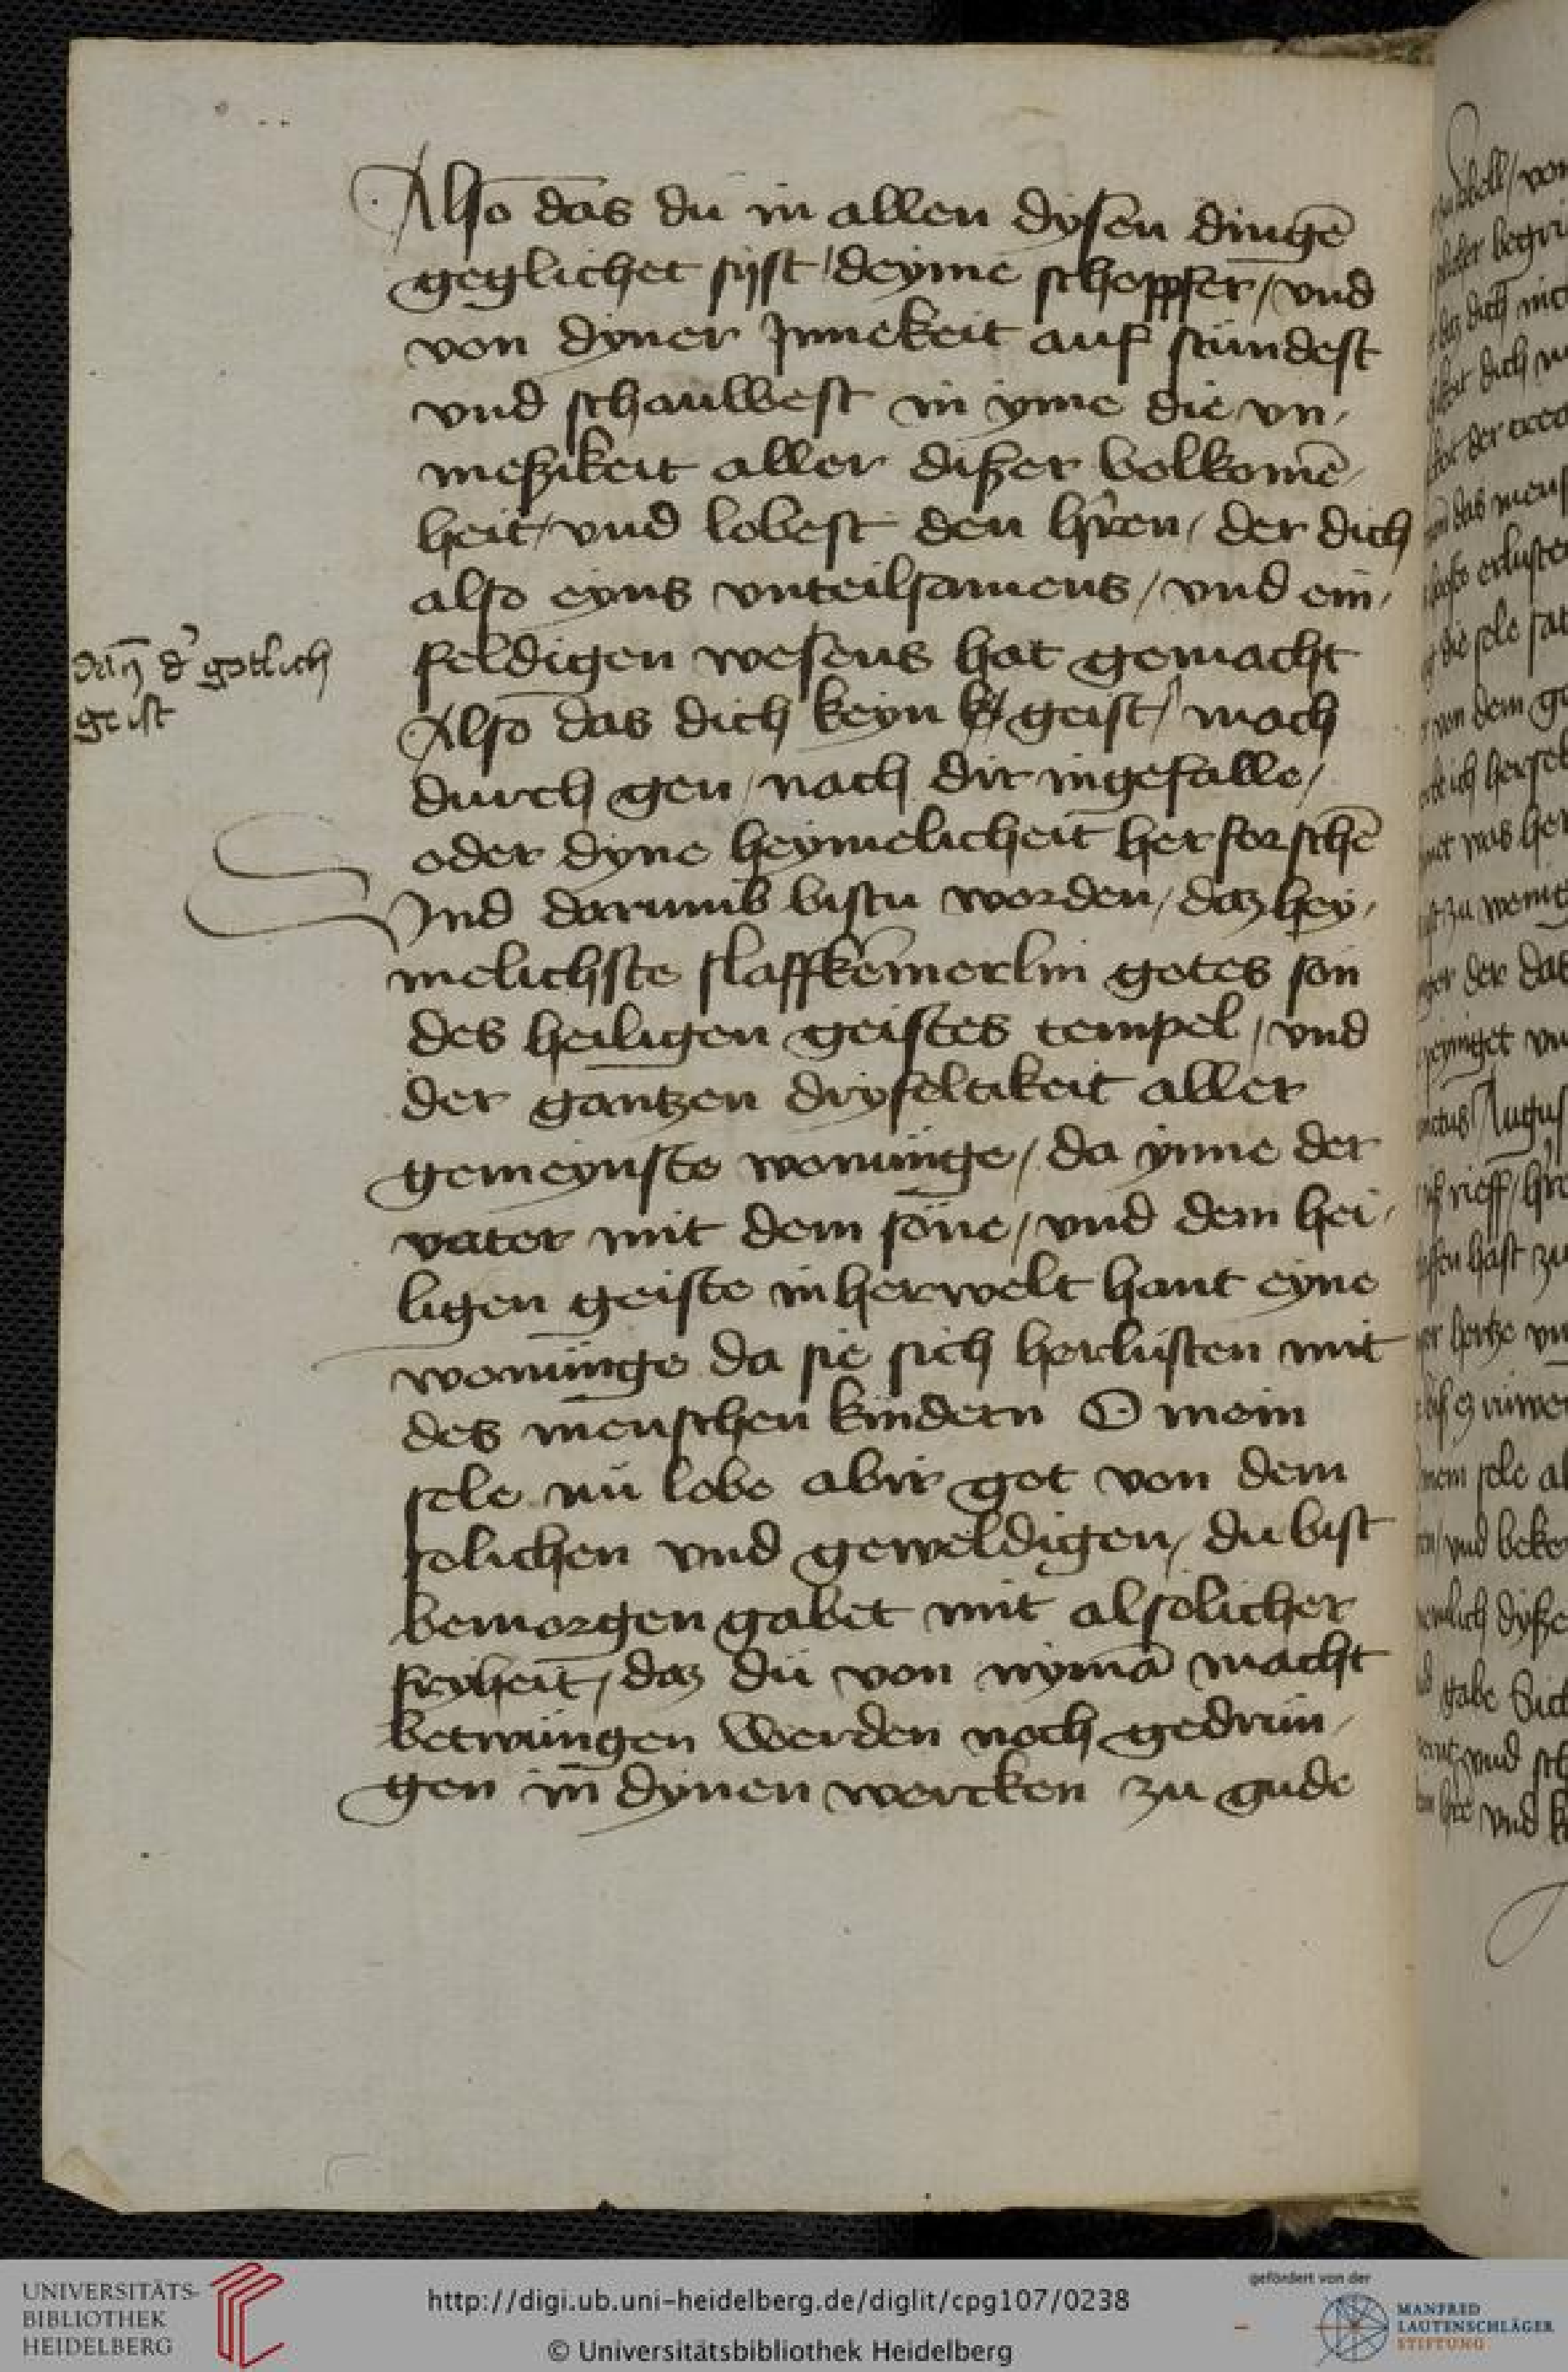 Also das du in allen dysen dingē
geglichet sijst / deyme schoppfer / vnd
von dyner Jnnekeit auf stundest
vnd schauwest in yme die vn/
meßikeit aller dißer volkomē/
heit / vnd lobest den hr̄en / der dich
also eyns vnteilsamens / vnd ein/
feldigen wesens hat gemacht
dan̄ d' gotlich
geist
Also das dich keyn geist / mach
durch gen / nach dir ingefalle /
oder dyne heymelicheit herforschē
Vnd darumb bistu worden / daz hey/
melichste slaffkem̄erlin gotes son
des heiligen geistes tempel / vnd
der gantzen dryfeltikeit aller
gemeynste wonunge / da ynne der
vater mit dem sone / vnd dem hei/
ligen geiste in herwelt hant eyne
wonunge da sie sich herlusten mit
des menschen kindern O mein
sele nu lobe abir got von dem
solichen vnd geweldigen / du bist
bemorgengabet mit alsolicher
fryheit / daz du von nymā macht
betwungen werden noch gedrun/
gen in dynen wercken zu gude
UNIVERSITÄTS-
BIBLIOTHEK
HEIDELBERG
http://digi.ub.uni-heidelberg.de/diglit/cpg107/0238
© Universitätsbibliothek Heidelberg
gefördert von der
MANFRED
LAUTENSCHLÄGER
STIFTUNG